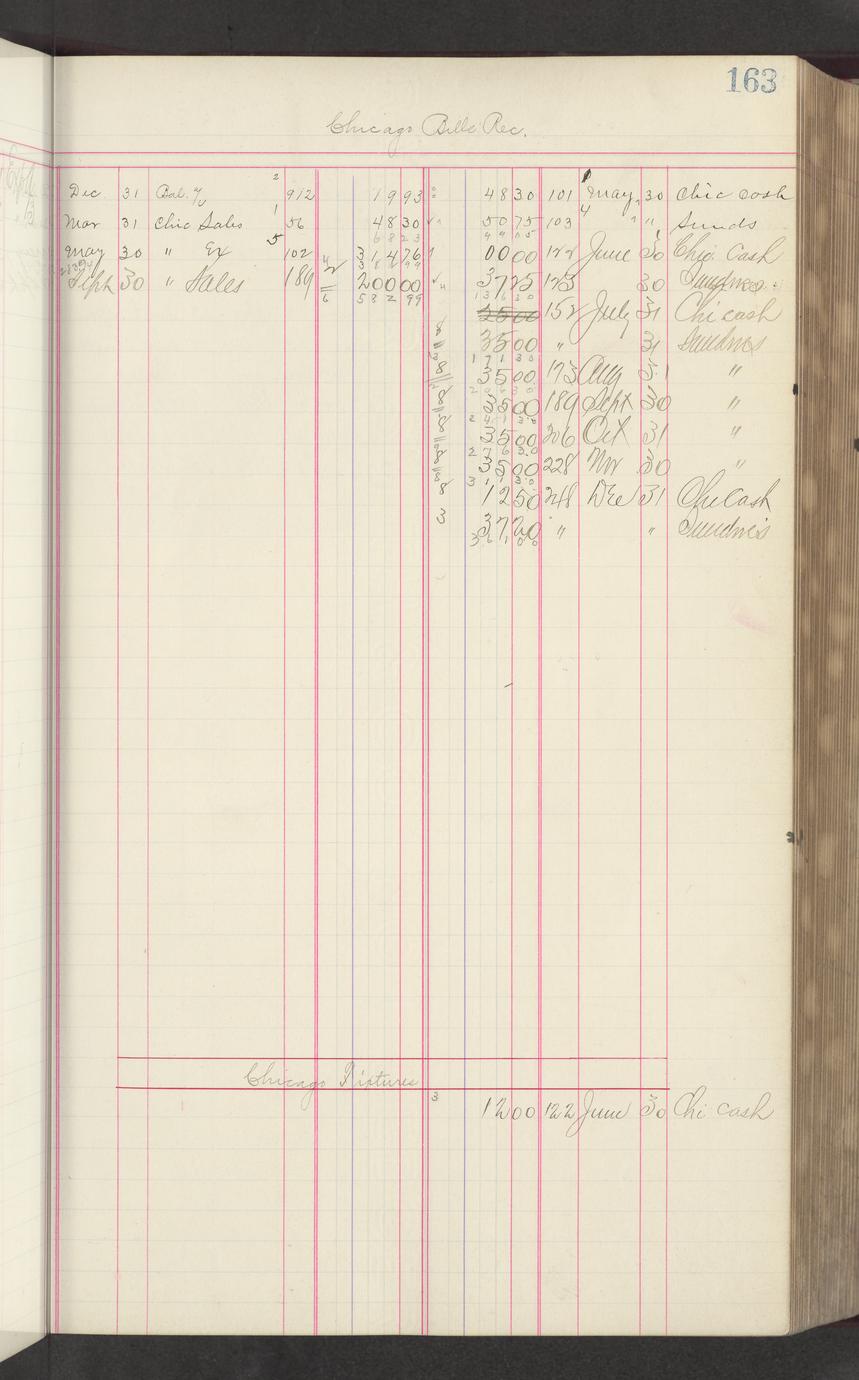 163
Chicago Bills Rec.
Dec 31 Bal. 2 912 19 93 48 30 101 May 30 Chic Cash
Mar 31 Chic Sales 1 56 48 30 50 75 103 " " Sunds
68 23 99 05
May 30 " Ex 5 102 314 76 00 00 122 June 30 Chic Cash
382 99
Sept 30 " Sales 189 200 00 37 25 123 30 Sundries
582 99 136 30
25 00 152 July 31 Chi cash
35 00 " 31 Sundries
171 30
35 00 173 Aug 31 "
35 00 189 Sept 30 "
241 30
35 00 206 Oct 31 "
276 30
35 00 228 Nov 30 "
311 30
12 50 248 Dec 31 Chi Cash
3 37 20 " " Sundries
361 00
Chicago Fixtures
3 12 00 122 June 30 Chi cash